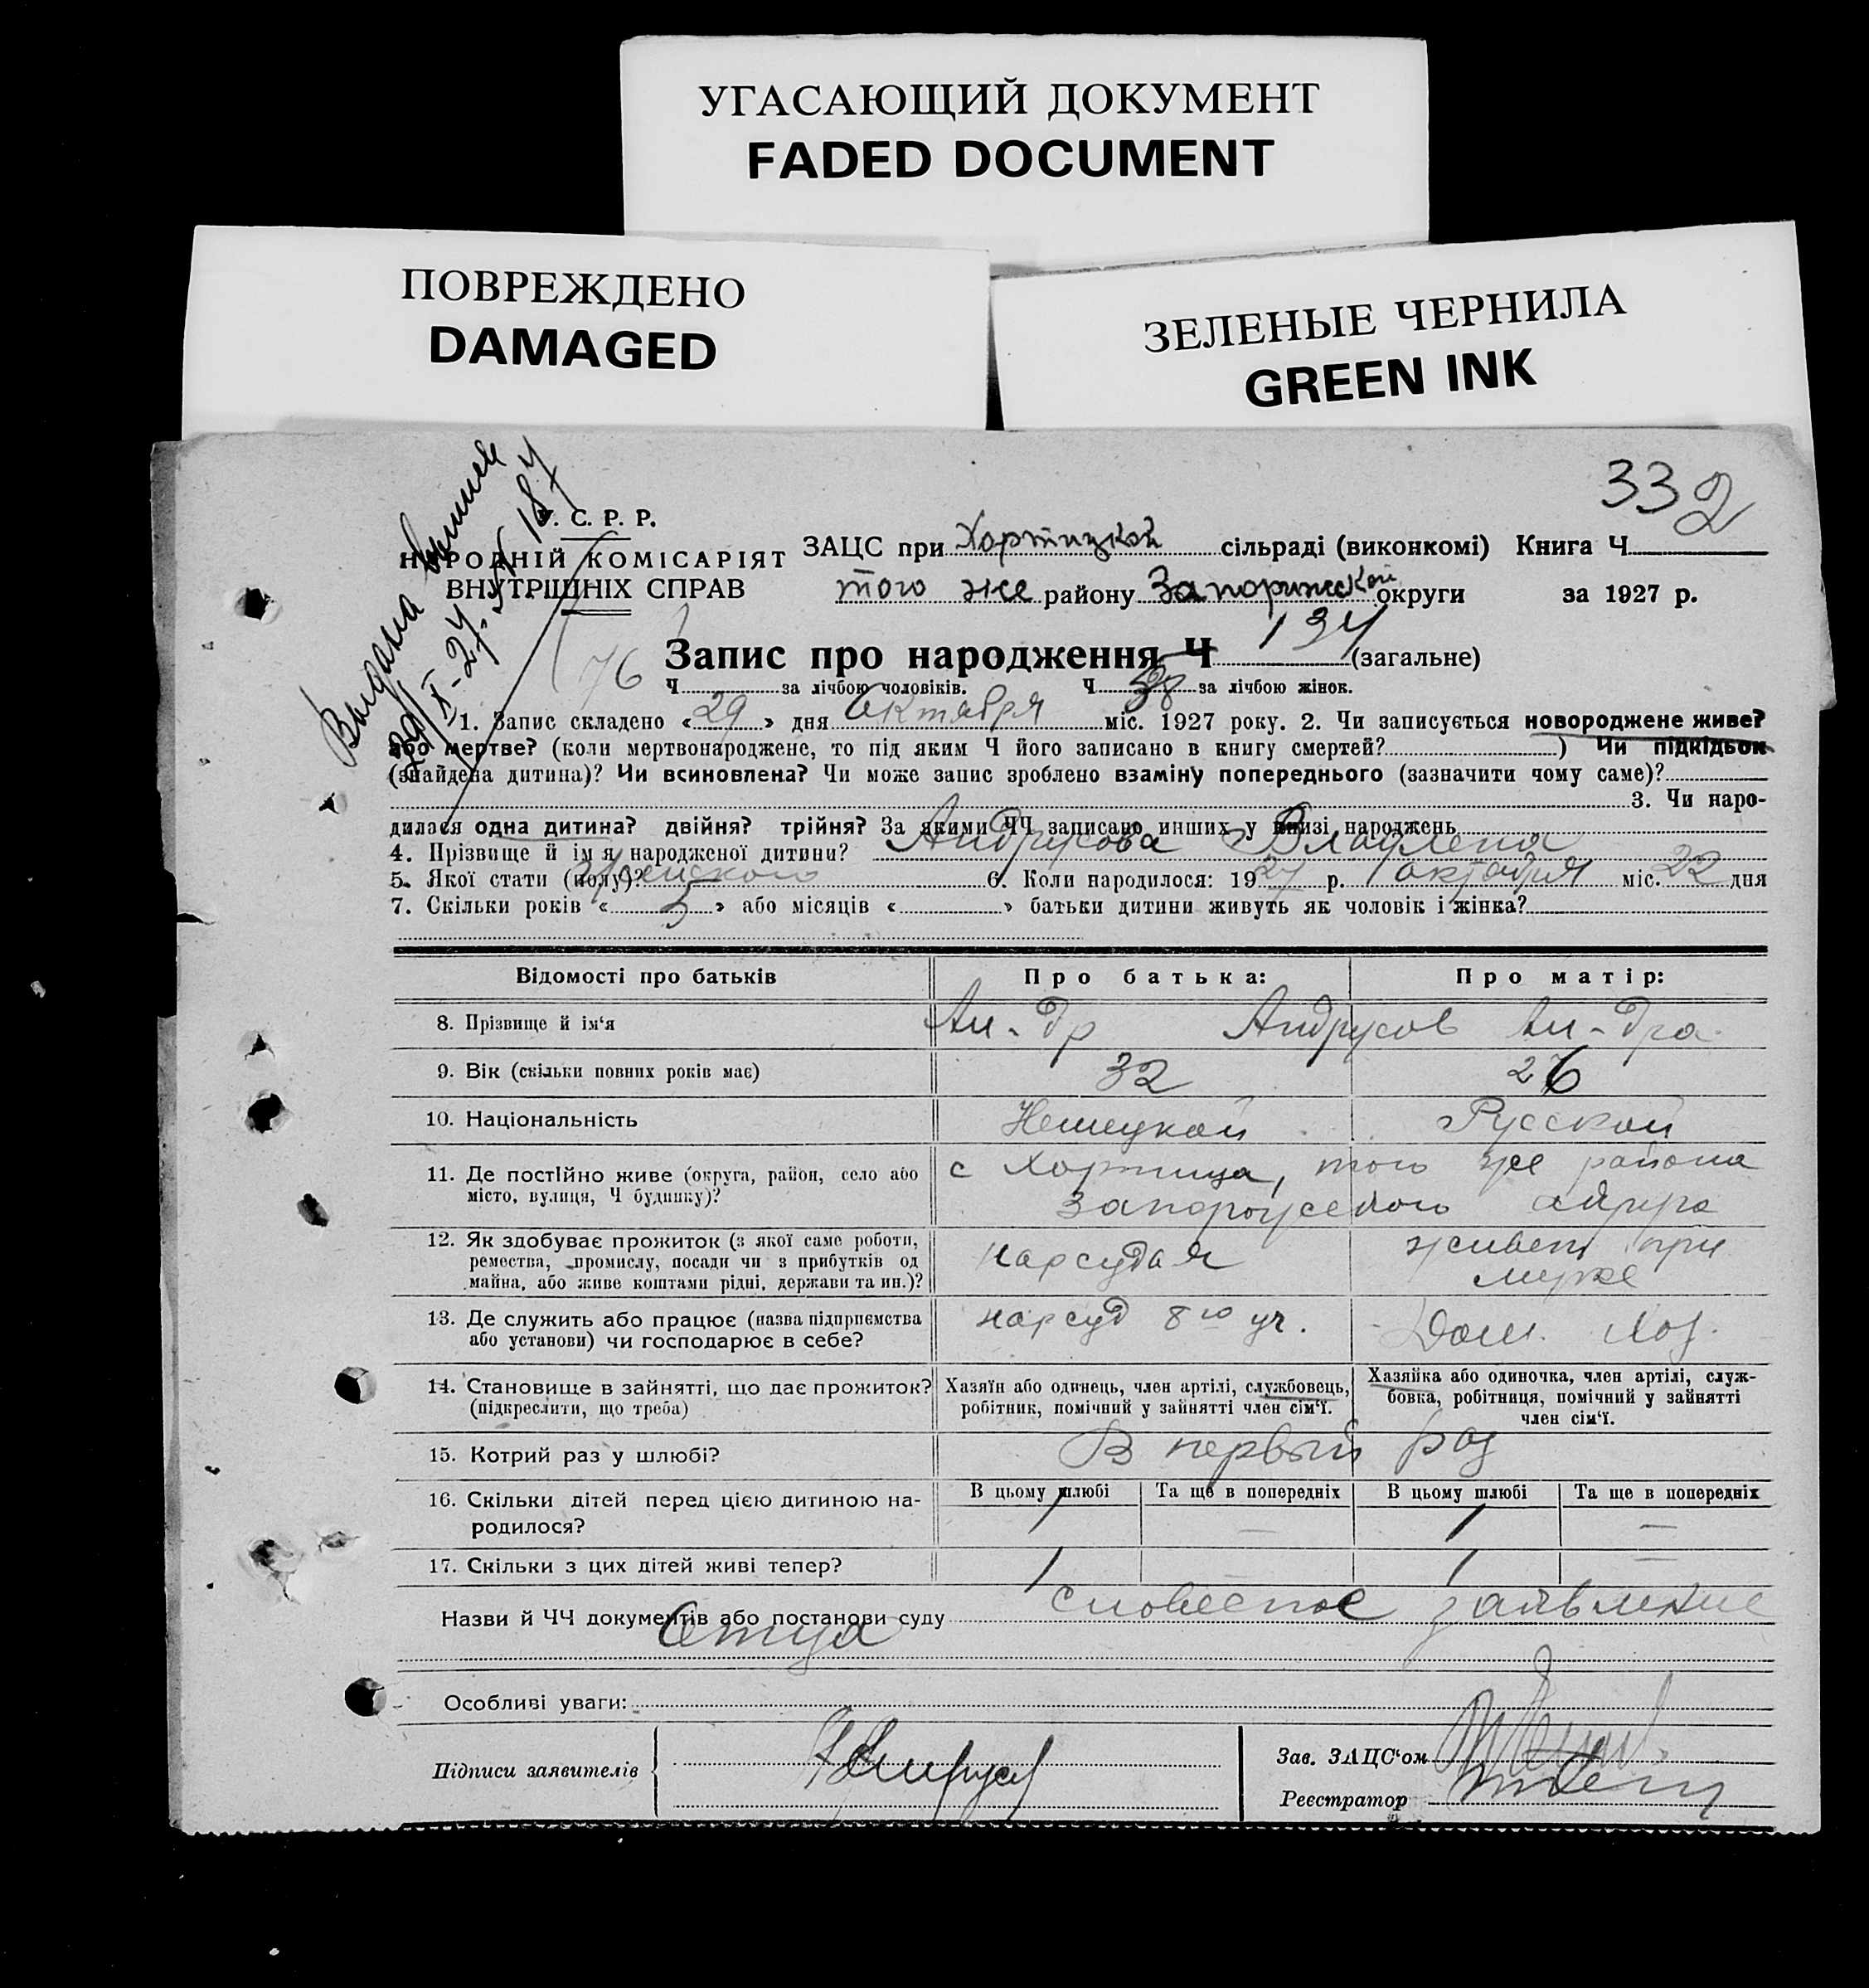 УГАСАЮЩИЙ ДОКУМЕНТ
FADED DOCUMENT
ПОВРЕЖДЕНО
DAMAGED
ЗЕЛЕНЫЕ ЧЕРНИЛА
GREEN INK
332
Выдана
С. Р. Р.
НАРОДНІЙ КОМІСАРІЯТ
ВНУТРІШНІХ СПРАВ
ЗАЦС при Хортицкой сільраді (виконкомі) Книга Ч
того же району Запорижской округи за 1927 р.
76 Запис про народження Ч 134 (загальне)
Ч за лічбою чоловіків. Ч за лічбою жінок.
1. Запис складено « 29 » дня Октября міс. 1927 року. 2. Чи записується новороджене живе?
або мертве? (коли мертвонароджене, то під яким Ч його записано в книгу смертей? ) Чи підкідьок
(знайдена дитина)? Чи всиновлена? Чи може запис зроблено взаміну попереднього (зазначити чому саме)?
3. Чи наро-
дилася одна дитина? двійня? трійня? За якими ЧЧ записано инших у книзі народжень
4. Прізвище й ім'я народженої дитини? Андрусова Владлена
5. Якої стати (полу)? Женского 6. Коли народилося: 19 27 р. октября міс. 22 дня
7. Скільки років « 5 » або місяців « » батьки дитини живуть як чоловік і жінка?
Відомості про батьків Про батька: Про матір:
8. Прізвище й ім'я Ал-др Андрусов Ал-дра
9. Вік (скільки повних років має) 32 26
10. Національність Немецкой Русской
11. Де постійно живе (округа, район, село або с Хортица, того же района
місто, вулиця, Ч будинку)? Запорожского округа
12. Як здобуває прожиток (з якої саме роботи, нарсудья живет при
ремества, промислу, посади чи з прибутків од муже
майна, або живе коштами рідні, держави та ин.)?
13. Де служить або працює (назва підприємства нарсуд 8го уч. Дом. Хоз.
або установи) чи господарює в себе?
14. Становище в зайнятті, що дає прожиток? Хазяїн або одинець, член артілі, службовець, Хазяйка або одиночка, член артілі, служ-
(підкреслити, що треба) робітник, помічний у зайнятті член сім'ї. бовка, робітниця, помічний у зайнятті
член сім'ї.
15. Котрий раз у шлюбі? В первый раз
16. Скільки дітей перед цією дитиною на- В цьому шлюбі Та ще в попередніх В цьому шлюбі Та ще в попередніх
родилося? 1 — 1 —
17. Скільки з цих дітей живі тепер? 1 1 —
Назви й ЧЧ документів або постанови суду словесное заявление
Отца
Особливі уваги:
Підписи заявителів
Зав. ЗАЦС'ом
Реєстратор